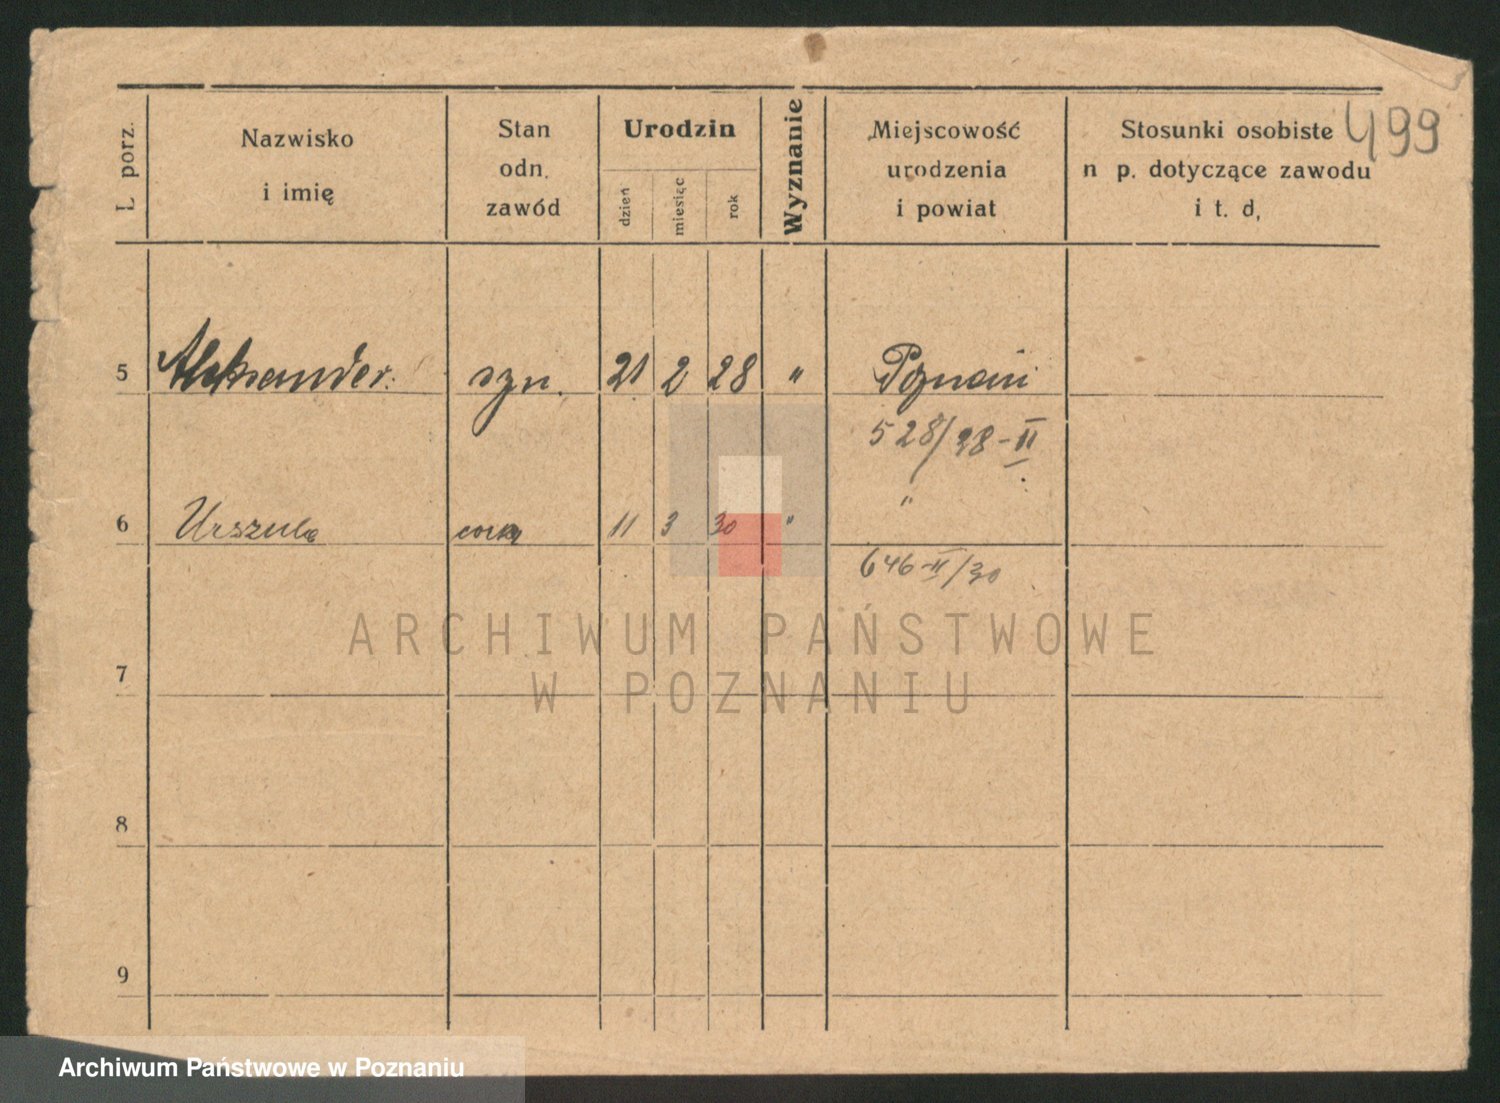 499
L porz.
Nazwisko
i imię
Stan
odn.
zawód
Urodzin
dzień
miesiąc
rok
Wyznanie
Miejscowość
urodzenia
i powiat
Stosunki osobiste
n p. dotyczące zawodu
i t. d,
5 Aleksander. syn. 21 2 28 " Poznań
528/28-II
6 Urszula córka 11 3 30 " "
646-II/30
7
8
9
ARCHIWUM PAŃSTWOWE
W POZNANIU
Archiwum Państwowe w Poznaniu